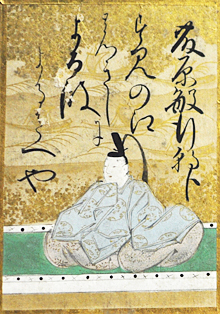 藤原敏行朝臣
すみの江
のきしに
よる波
よるさへや